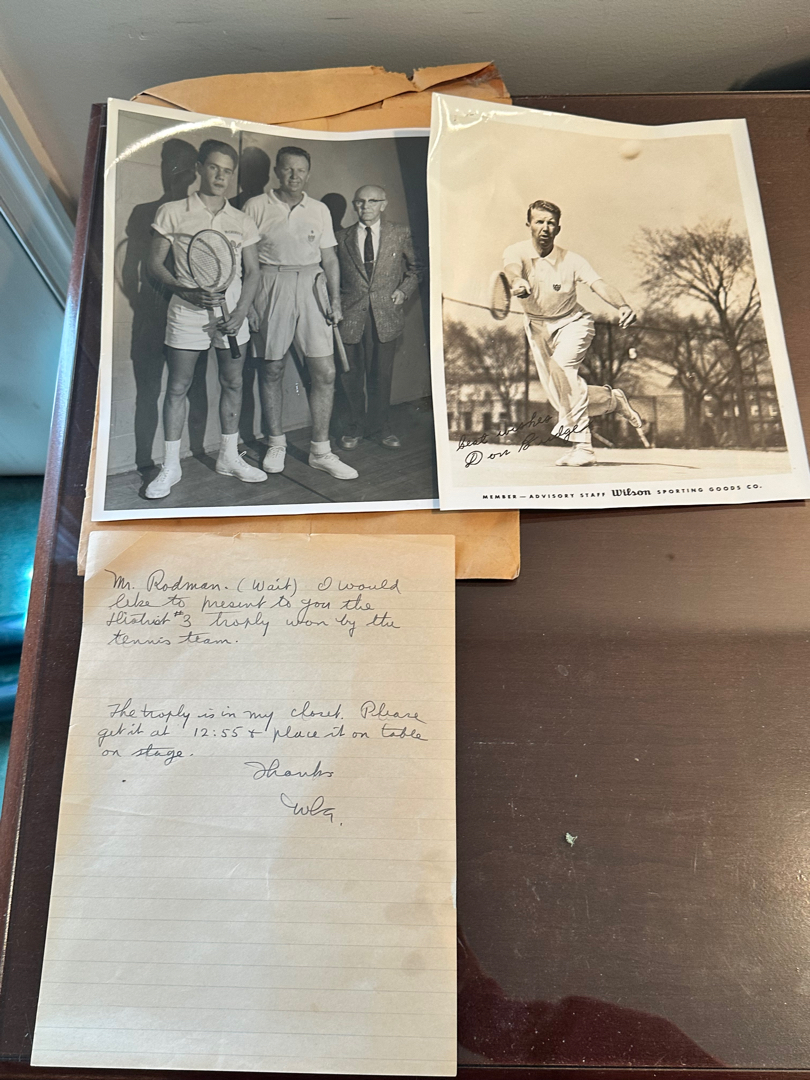 best wishes
Don Budge
MEMBER — ADVISORY STAFF Wilson SPORTING GOODS CO.
Mr. Rodman. (Wait) I would
like to present to you the
District #3 trophy won by the
tennis team.
The trophy is in my closet. Please
get it at 12:55 + place it on table
on stage.
Thanks